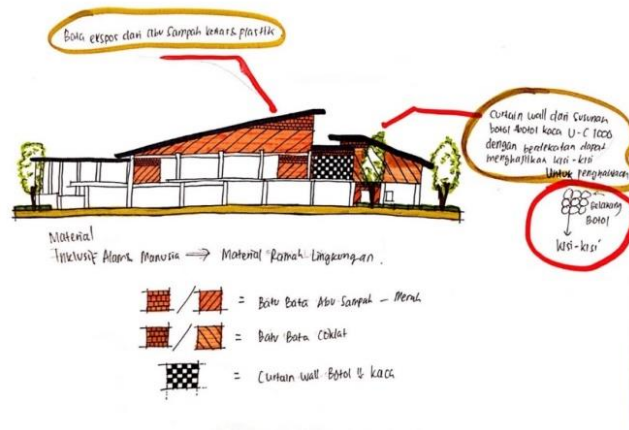 Bata ekspos dari abu sampah kertas plastik
Curtain wall dari susunan
botol botol kaca U-C 1000
dengan berdekatan dapat
menghasilkan kisi-kisi
untuk penghawaan
Belakang
Botol
kisi-kisi
Material
Inklusif Alam & Manusia → Material Ramah Lingkungan.
= Batu Bata Abu Sampah - Merah
= Batu Bata Coklat
= Curtain Wall Botol kaca